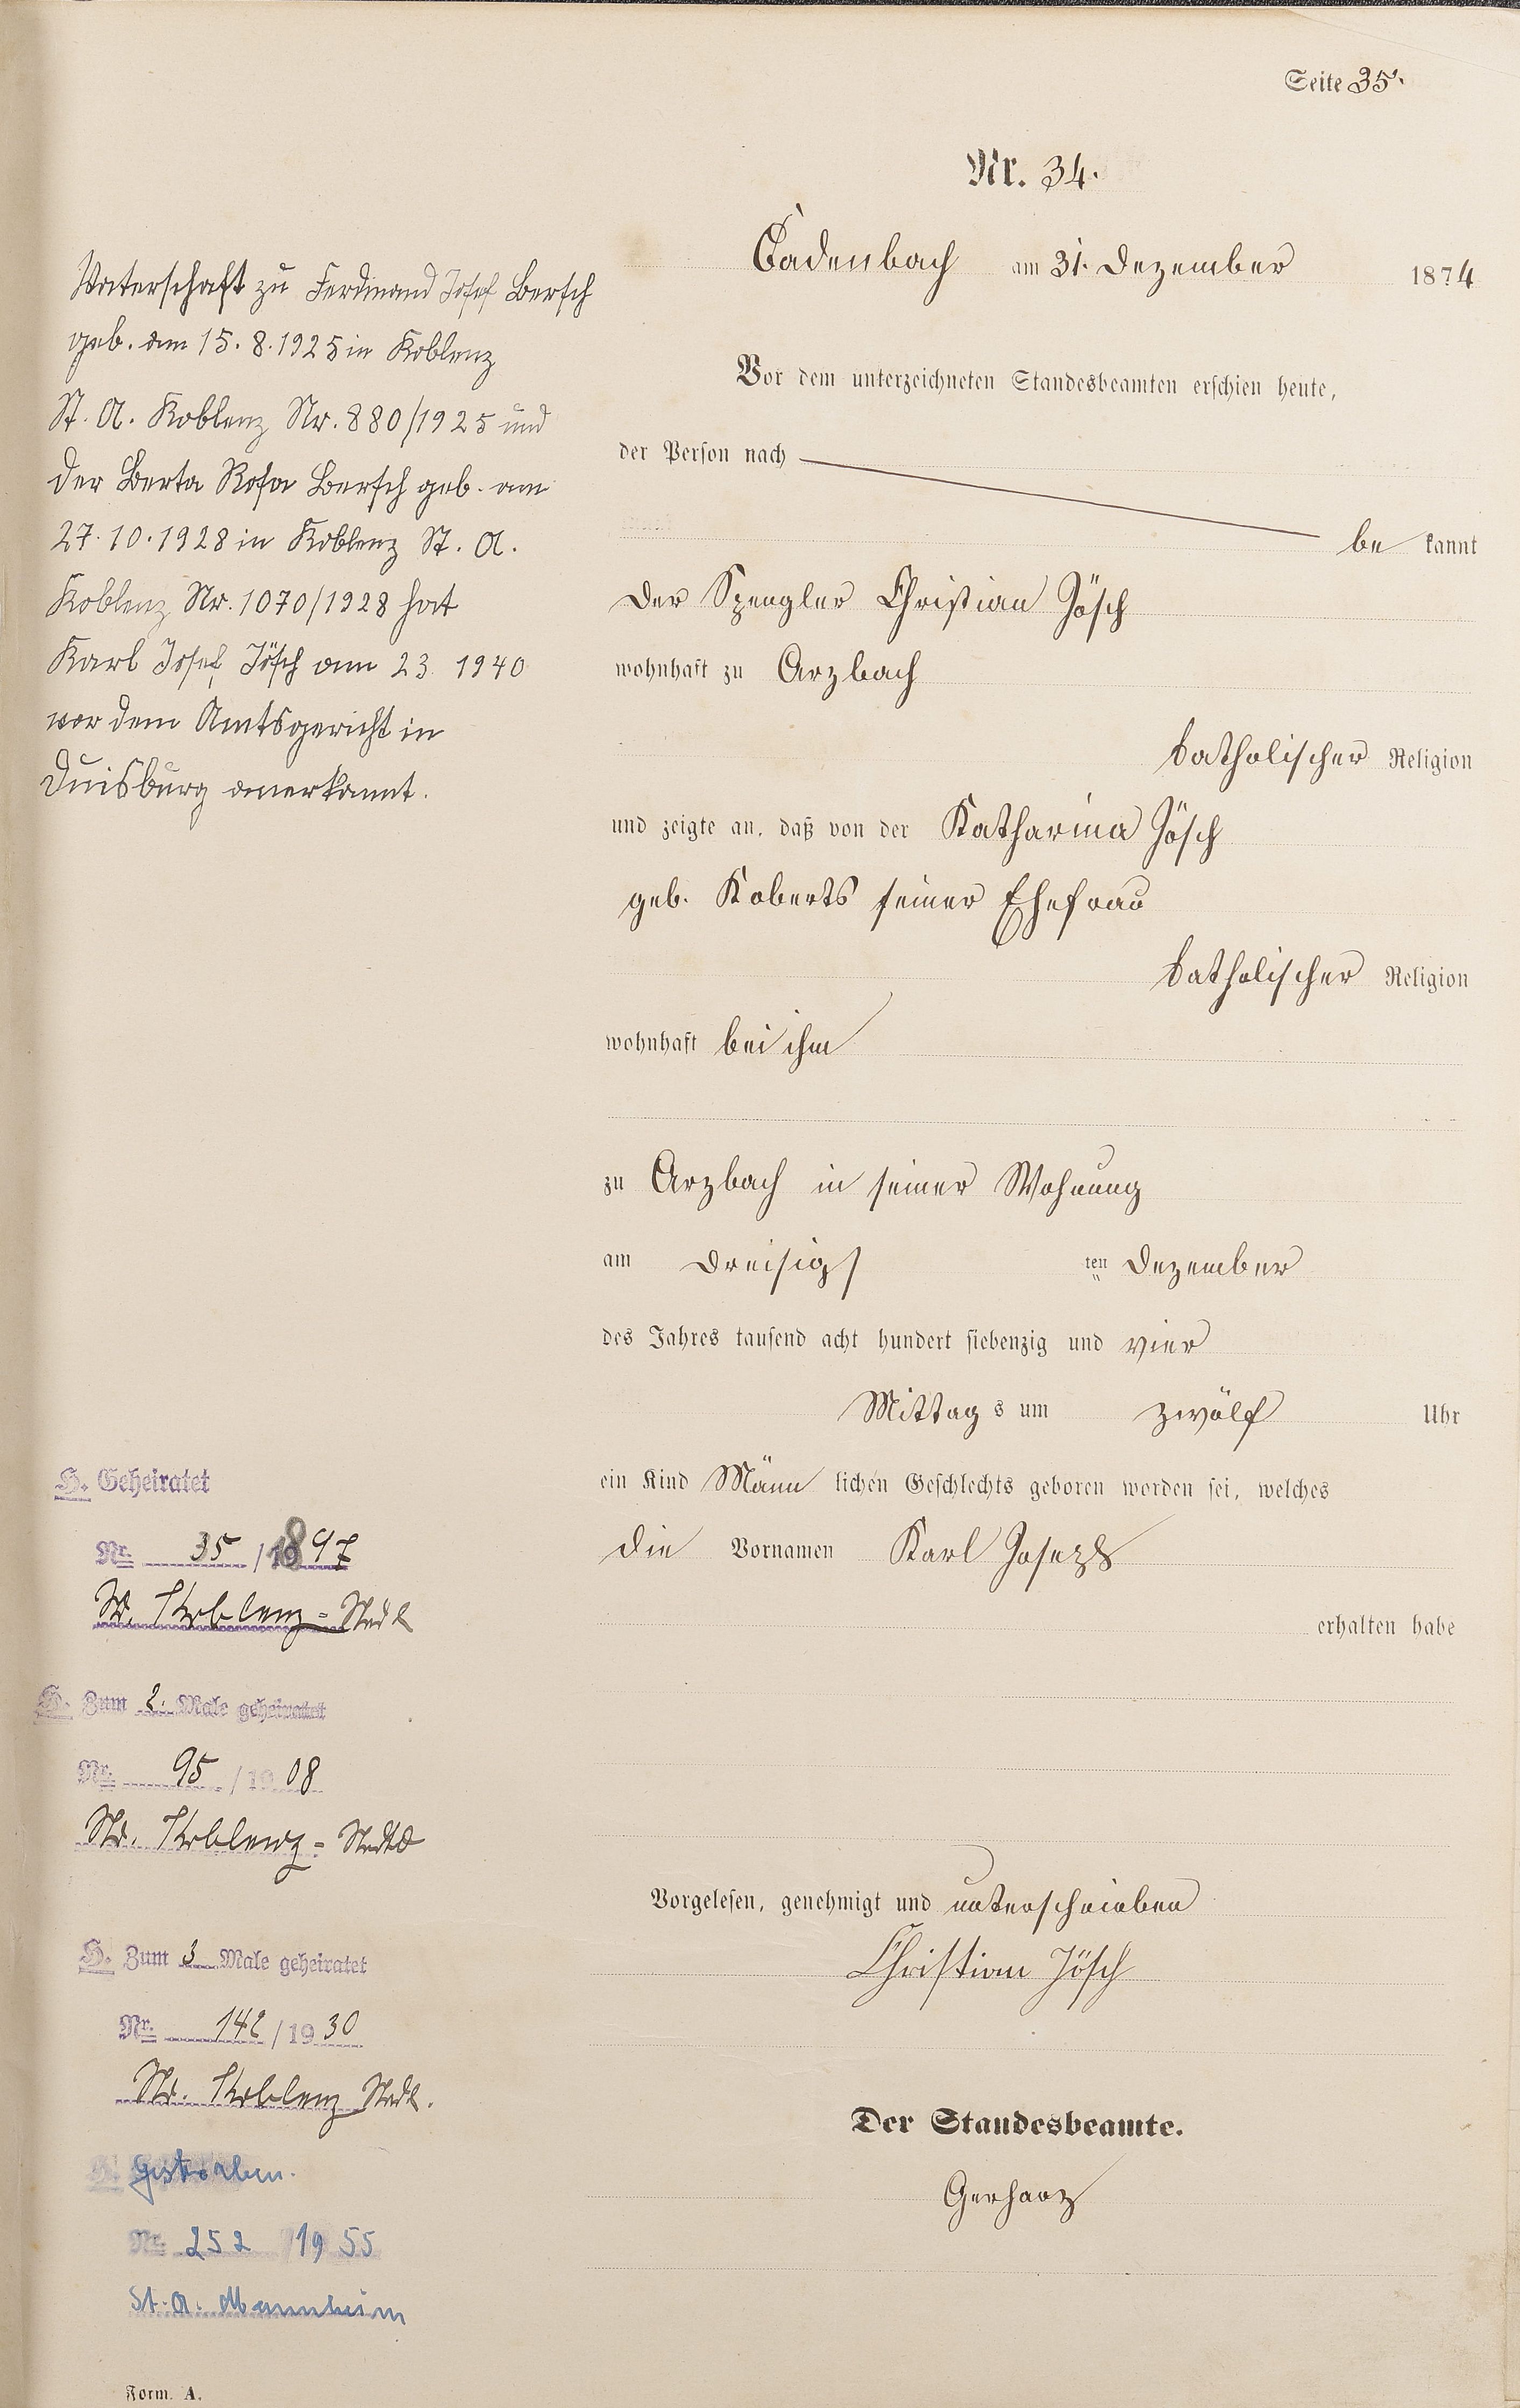 Seite 35.
Nr. 34.
Cadenbach am 31. Dezember 1874
Vor dem unterzeichneten Standesbeamten erschien heute,
der Person nach
be kannt
der Spengler Christian Jösch
wohnhaft zu Arzbach
katholischer Religion
und zeigte an, daß von der Katharina Jösch
geb. Koberts seiner Ehefrau
katholischer Religion
wohnhaft bei ihm
zu Arzbach in seiner Wohnung
am dreisigs ten Dezember
des Jahres tausend acht hundert siebenzig und vier
Mittag s um zwölf Uhr
ein Kind Männ lichen Geschlechts geboren worden sei, welches
die Vornamen Karl Joseph
erhalten habe
Vorgelesen, genehmigt und unterschrieben
Christian Jösch
Der Standesbeamte.
Gerharz
Vaterschaft zu Ferdinand Josef Bersch
geb. am 15.8.1925 in Koblenz
St. A. Koblenz Nr. 880/1925 und
der Berta Rosa Bersch geb. am
27.10.1928 in Koblenz St. A.
Koblenz Nr. 1070/1928 hat
Karl Josef Jösch am 23. 1940
vor dem Amtsgericht in
Duisburg anerkannt.
H. Geheiratet
Nr. 35 / 1897
Koblenz-Stadt
H. Zum 2. Male geheiratet
Nr. 95 / 1908
Koblenz-Stadt
H. Zum 3 Male geheiratet
Nr. 142 / 1930
Koblenz Stadt.
Gestorben.
Nr. 252 1955
St. A. Mannheim
Form. A.